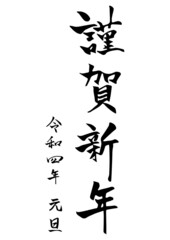 謹賀新年
令和四年 元旦